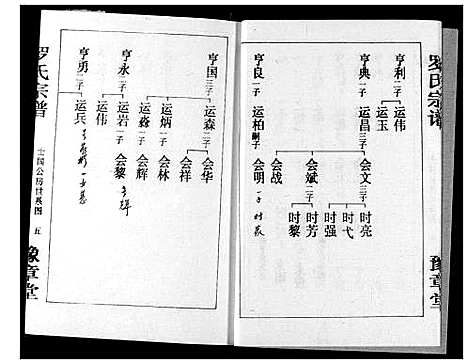 罗氏宗谱
豫章堂
亨利 二子
运伟
运玉
亨典 一子
运昌 三子
会文 三子
时亮
时弋
时强
会斌 二子
时芳
时黎
会战
亨良 一子
运柏 嗣子
会明
亨国 三子
运森 二子
会华
会祥
运炳 一子
会林
运淼 一子
会辉
亨永 二子
运岩 一子
会黎
运伟
亨勇 一子
运兵
罗氏宗谱
士国公房世系图
五
豫章堂